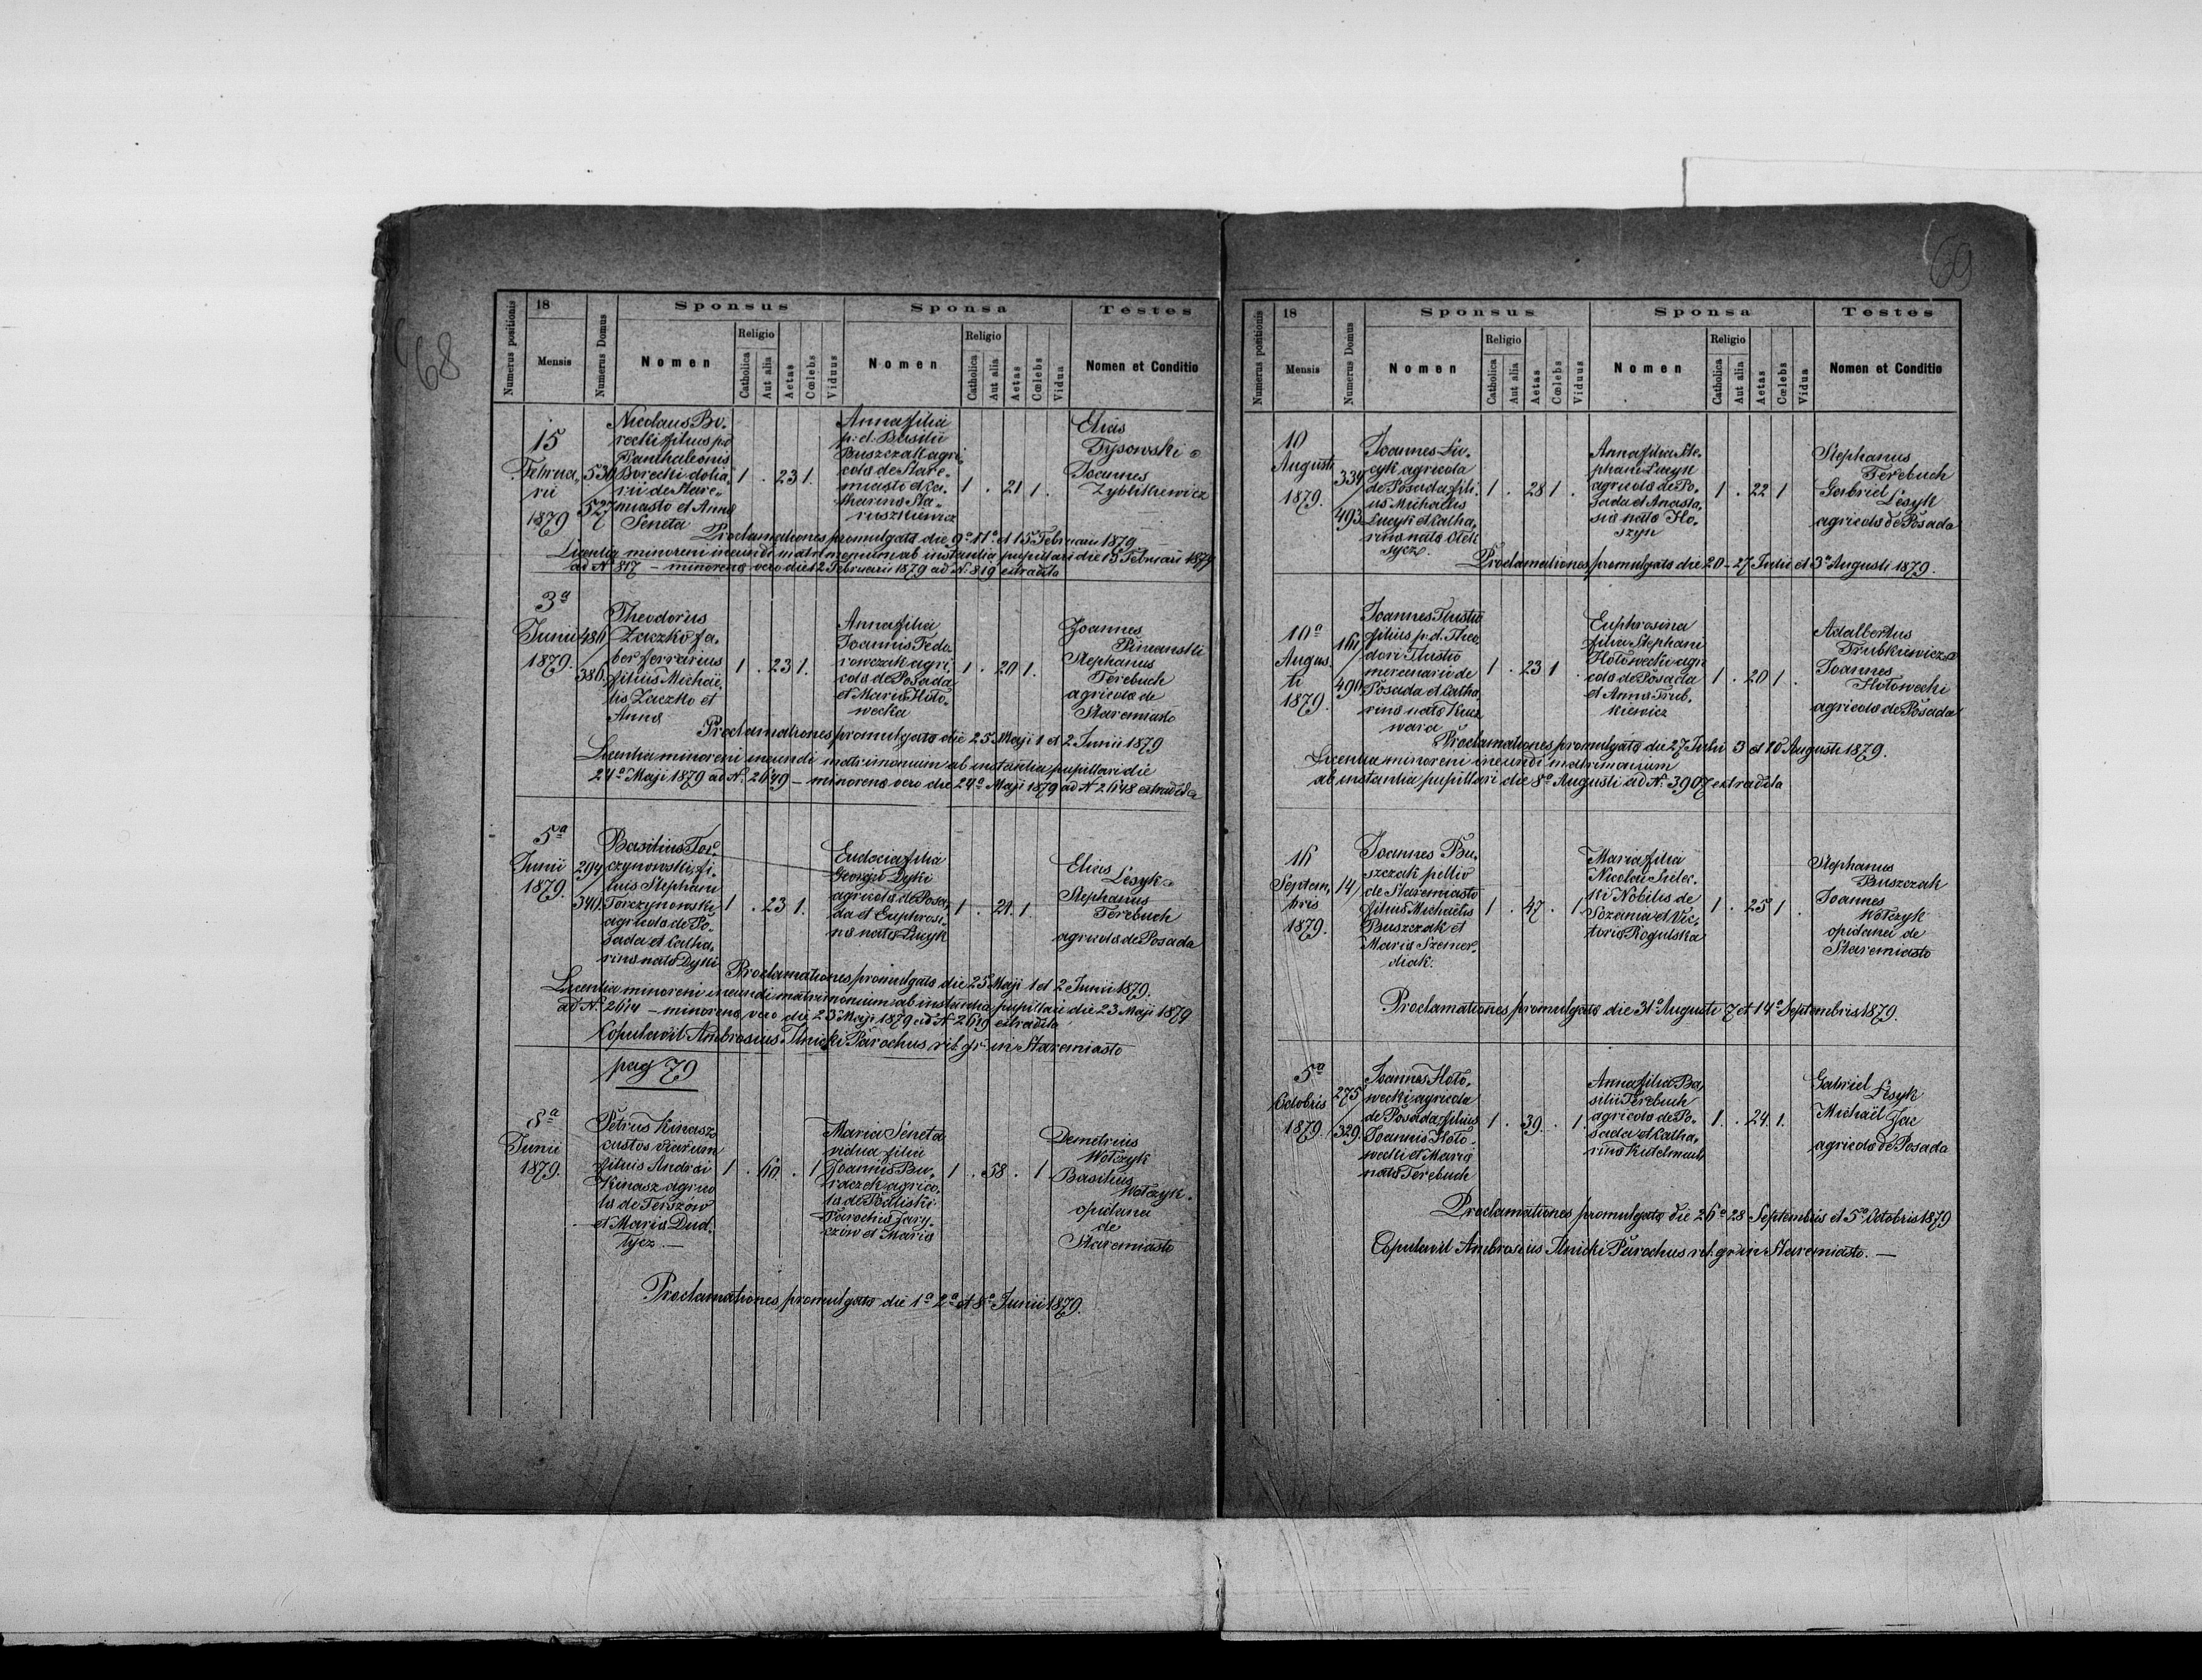 68
Numerus positionis
18
Mensis
Numerus Domus
Sponsus
Nomen
Religio
Catholica
Aut alia
Aetas
Cœlebs
Viduus
Sponsa
Nomen
Religio
Catholica
Aut alia
Aetas
Cœlebs
Vidua
Testes
Nomen et Conditio
15
Februa„
rii
1879
530
527
Nicolaus Bo„
recki filius p.d
Panthaleonis
Borecki dolia„
rii de Stare„
miasto et Anna
Seneta
1 . 23 1.
Anna filia
p. d. Basilii
Buszczak agri„
cola de Stare„
miasto et Ca„
tharina Sta„
ruszkiewicz
1 . 21 1.
Elias
Tysowski
Joannes
Zyblikiewicz
Proclamationes promulgata die 9ª 11ª et 15ª Februarii 1879
Licentia minoreni ineundi matrimonium ab instantia pupillari die 13 Februarii 1879
ad N 817 – minorena vero die 12 Februarii 1879 ad N. 819 extradita
3ª
Junii
1879.
480
380.
Theodorus
Zaczko fa„
ber ferrarius
filius Michaë„
lis Zaczko et
Anna
1 . 23 1.
Anna filia
Joannis Fedo„
rowczak agri„
cola de Posada
et Maria Hoło„
wecka
1 . 20 1.
Joannes
Stephanus
Terebuch
agricola de
Staremiasto
Proclamationes promulgata die 25 Maji 1 et 2 Junii 1879
Licentia minoreni ineundi matrimonium ab instantia pupillari die
24ª Maji 1879 ad N. 2649 – minorena vero die 24ª Maji 1879 ad N 2648 extradita
5ª
Junii
1879.
294
340.
Basilius Tor„
czynowski fi„
lius Stephani
Torczynowski
agricola de Po„
sada et Catha„
rina nata Dyki
1 . 23 1.
Eudocia filia
Georgii Dyki
agricola de Posa„
da et Euphrosi„
na nata Lucyk
1 . 21. 1
Elias
Lesyk
Stephanus
Terebuch
agricola de Posada
Proclamationes promulgata die 25 Maji 1 et 2 Junii 1879.
Licentia minoreni ineundi matrimonium ab instantia pupillari die 23 Maji 1879
ad N. 2614 – minorena vero die 23 Maji 1879 ad N 2619 extradita
Copulavit Ambrosius Ilnicki Parochus rit. gr. in Staremiasto
pag 79
8ª
Junii
1879.
Petrus Kinasz
custos viarum
filius Andrei
Kinasz agrico
la de Terszów
et Maria Dud„
tycz. —
1 . 60 . 1
Maria Seneta
vidua filia
Joannis Bu„
raczek agrico„
la de Podliski
Parochia Jary„
czów et Maria
1 . 58 . 1
Demetrius
Wołczyk
Basilius
Wołczyk
opidanei
de
Staremiasto
Proclamationes promulgata die 1ª 2ª et 8ª Junii 1879.
69
Numerus positionis
18
Mensis
Numerus Domus
Sponsus
Nomen
Religio
Catholica
Aut alia
Aetas
Cœlebs
Viduus
Sponsa
Nomen
Religio
Catholica
Aut alia
Aetas
Cœlebs
Vidua
Testes
Nomen et Conditio
10
Augusti
1879.
339
493
Joannes Lu„
cyk agricola
de Posada fili„
us Michaëlis
Lucyk et Catha„
rina nata Olek
sycz.
1 . 28 1 .
Anna filia Ste„
phani Lucyk
agricola de Po„
sada et Anasta„
sia nata Ho„
szyn
1 . 22 1
Stephanus
Terebuch
Gabriel
Lesyk
agricola de Posada
Proclamationes promulgata die 20 – 27 Julii et 3ª Augusti 1879.
10ª
Augus„
ti
1879.
161
490
Joannes Tłusto
filius p. d. Theo„
dori Tłusto
mercenarii de
Posada et Catha
rina nata Kucz
wara
1 . 23 1 .
Euphrosina
filia Stephani
Hołowecki agri
cola de Posada
et Anna Trub„
kiewicz
1 . 20 1 .
Adalbertus
Trubkiewicz
Joannes
Hołowecki
agricola de Posada
Proclamationes promulgata die 27 Julii 3 et 10 Augusti 1879.
Licentia minoreni ineundi matrimonium
ab instantia pupillari die 8ª Augusti ad N. 3907 extradita
16
Septem„
bris
1879.
14
Joannes Bu„
szczak pellio
de Staremiasto
filius Michaëlis
Buszczak et
Maria Szemer„
diak.
1 . 47 . 1
Maria filia
Nicolai Sielec„
ki Nobilis de
Sozania et Vic„
toria Rogulska
1 . 25 1 .
Stephanus
Buszczak
Joannes
Wołczyk
opidanei de
Staremiasto
Proclamationes promulgata die 31ª Augusti 7 et 14ª Septembris 1879.
5ª
Octobris
1879
275
329.
Joannes Hoło„
wecki agricola
de Posada filius
Joannis Hoło„
wecki et Maria
nata Terebuch
1 . 39 . 1
Anna filia Ba„
silii Terebuch
agricola de Po„
sada et Catha„
rina
1 . 24 1.
Gabriel
Lesyk
Michaël
Jac
agricola de Posada
Proclamationes promulgata die 26ª 28 Septembris et 5ª Octobris 1879
Copulavit Ambrosius Ilnicki Parochus rit. gr. in Staremiasto. —